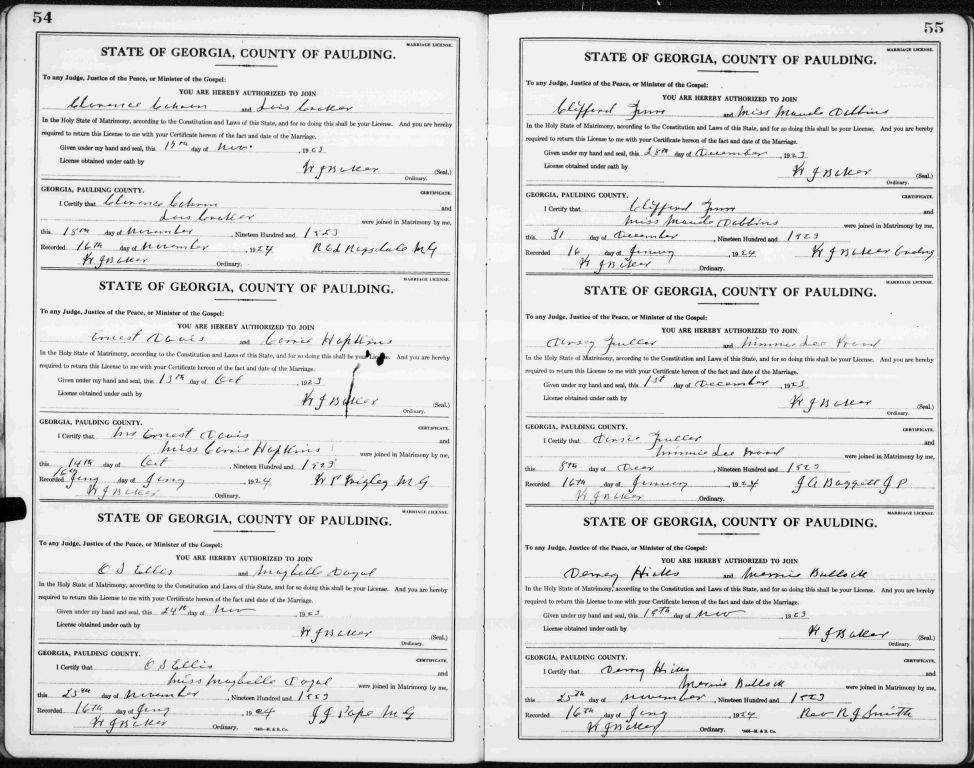 54
MARRIAGE LICENSE.
STATE OF GEORGIA, COUNTY OF PAULDING.
To any Judge, Justice of the Peace, or Minister of the Gospel:
YOU ARE HEREBY AUTHORIZED TO JOIN
Clarence and Lois Croker
In the Holy State of Matrimony, according to the Constitution and Laws of this State, and for so doing this shall be your License. And you are hereby
required to return this License to me with your Certificate hereon of the fact and date of the Marriage.
Given under my hand and seal, this 17th day of Nov. , 1923
License obtained under oath by
W J Baker (Seal.)
Ordinary.
GEORGIA, PAULDING COUNTY. CERTIFICATE.
I Certify that Clarence and
Lois Croker were joined in Matrimony by me,
this 18th day of November , Nineteen Hundred and 1923
Recorded 16th day of November , 1924 Ragsdale M G
W J Baker Ordinary.
MARRIAGE LICENSE.
STATE OF GEORGIA, COUNTY OF PAULDING.
To any Judge, Justice of the Peace, or Minister of the Gospel:
YOU ARE HEREBY AUTHORIZED TO JOIN
Ernest Davis and Carrie Hopkins
In the Holy State of Matrimony, according to the Constitution and Laws of this State, and for so doing this shall be your License. And you are hereby
required to return this License to me with your Certificate hereon of the fact and date of the Marriage.
Given under my hand and seal, this 13th day of Oct , 1923
License obtained under oath by
W J Baker (Seal.)
Ordinary.
GEORGIA, PAULDING COUNTY. CERTIFICATE.
I Certify that Mr Ernest Davis and
Miss Carrie Hopkins were joined in Matrimony by me,
this 14th day of Oct , Nineteen Hundred and 1923
Recorded 16th day of , 1924 M G
W J Baker Ordinary.
MARRIAGE LICENSE.
STATE OF GEORGIA, COUNTY OF PAULDING.
To any Judge, Justice of the Peace, or Minister of the Gospel:
YOU ARE HEREBY AUTHORIZED TO JOIN
O S Ellis and Maybelle Dogal
In the Holy State of Matrimony, according to the Constitution and Laws of this State, and for so doing this shall be your License. And you are hereby
required to return this License to me with your Certificate hereon of the fact and date of the Marriage.
Given under my hand and seal, this 24th day of Nov , 1923
License obtained under oath by
W J Baker (Seal.)
Ordinary.
GEORGIA, PAULDING COUNTY. CERTIFICATE.
I Certify that O S Ellis and
Miss Maybelle Dogal were joined in Matrimony by me,
this 25th day of November , Nineteen Hundred and 1923
Recorded 16th day of , 1924 J J Pope M G
W J Baker Ordinary.
55
MARRIAGE LICENSE.
STATE OF GEORGIA, COUNTY OF PAULDING.
To any Judge, Justice of the Peace, or Minister of the Gospel:
YOU ARE HEREBY AUTHORIZED TO JOIN
Clifford and Miss Maude Dobbins
In the Holy State of Matrimony, according to the Constitution and Laws of this State, and for so doing this shall be your License. And you are hereby
required to return this License to me with your Certificate hereon of the fact and date of the Marriage.
Given under my hand and seal, this 28th day of December , 1923
License obtained under oath by
W J Baker (Seal.)
Ordinary.
GEORGIA, PAULDING COUNTY. CERTIFICATE.
I Certify that Clifford and
Miss Maude Dobbins were joined in Matrimony by me,
this 31 day of December , Nineteen Hundred and 1923
Recorded 16 day of , 1924 W J Baker
W J Baker Ordinary.
MARRIAGE LICENSE.
STATE OF GEORGIA, COUNTY OF PAULDING.
To any Judge, Justice of the Peace, or Minister of the Gospel:
YOU ARE HEREBY AUTHORIZED TO JOIN
Fuller and Minnie Lee Wood
In the Holy State of Matrimony, according to the Constitution and Laws of this State, and for so doing this shall be your License. And you are hereby
required to return this License to me with your Certificate hereon of the fact and date of the Marriage.
Given under my hand and seal, this 1st day of December , 1923
License obtained under oath by
W J Baker (Seal.)
Ordinary.
GEORGIA, PAULDING COUNTY. CERTIFICATE.
I Certify that Fuller and
Minnie Lee Wood were joined in Matrimony by me,
this 8th day of , Nineteen Hundred and 1923
Recorded 16th day of , 1924 J A Baggett J P
W J Baker Ordinary.
MARRIAGE LICENSE.
STATE OF GEORGIA, COUNTY OF PAULDING.
To any Judge, Justice of the Peace, or Minister of the Gospel:
YOU ARE HEREBY AUTHORIZED TO JOIN
Hicks and Bullock
In the Holy State of Matrimony, according to the Constitution and Laws of this State, and for so doing this shall be your License. And you are hereby
required to return this License to me with your Certificate hereon of the fact and date of the Marriage.
Given under my hand and seal, this 19th day of Nov , 1923
License obtained under oath by
W J Baker (Seal.)
Ordinary.
GEORGIA, PAULDING COUNTY. CERTIFICATE.
I Certify that Hicks and
Bullock were joined in Matrimony by me,
this 25th day of November , Nineteen Hundred and 1923
Recorded 16th day of , 1924 Rev R J Smith
W J Baker Ordinary.